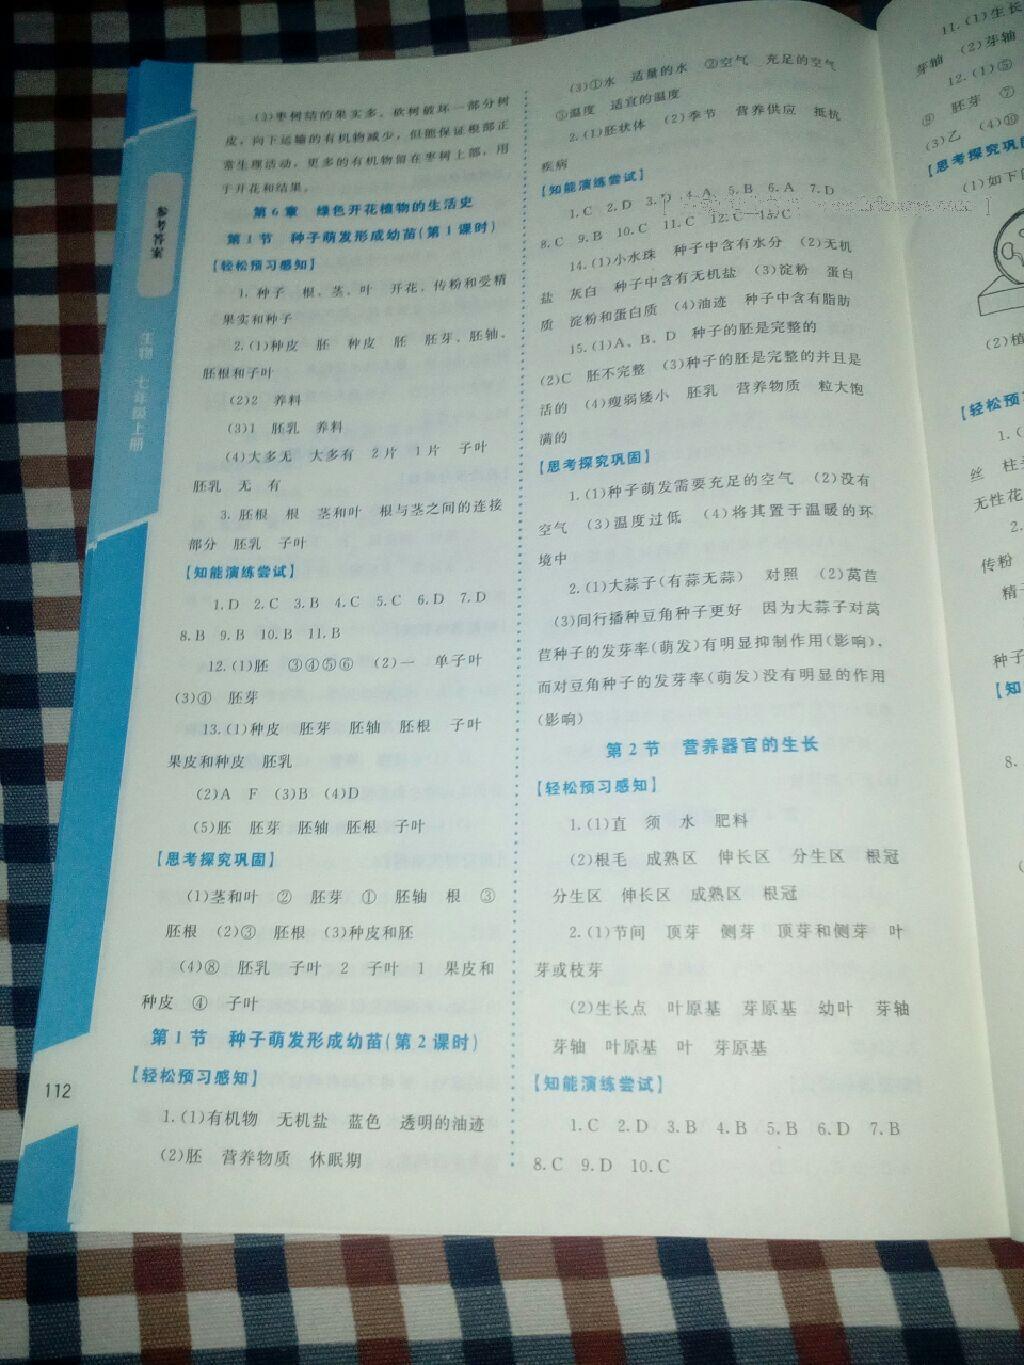 (3)枣树结的果实多。砍树破坏一部分树
皮,向下运输的有机物减少,但能保证根部正
常生理活动。更多的有机物留在枣树上部,用
于开花和结果。
第6章 绿色开花植物的生活史
第1节 种子萌发形成幼苗(第1课时)
【轻松预习感知】
1. 种子 根、茎、叶 开花、传粉和受精
果实和种子
2.(1)种皮 胚 种皮 胚 胚芽、胚轴、
胚根和子叶
(2)2 养料
(3)1 胚乳 养料
(4)大多无 大多有 2片 1片 子叶
胚乳 无 有
3. 胚根 根 茎和叶 根与茎之间的连接
部分 胚乳 子叶
【知能演练尝试】
1.D 2.C 3.B 4.C 5.C 6.D 7.D
8.B 9.B 10.B 11.B
12.(1)胚 ③④⑤⑥ (2)一 单子叶
(3)④ 胚芽
13.(1)种皮 胚芽 胚轴 胚根 子叶
果皮和种皮 胚乳
(2)A F (3)B (4)D
(5)胚 胚芽 胚轴 胚根 子叶
【思考探究巩固】
(1)茎和叶 ② 胚芽 ① 胚轴 根 ③
胚根 (2)③ 胚根 (3)种皮和胚
(4)⑧ 胚乳 子叶 2 子叶 1 果皮和
种皮 ④ 子叶
第1节 种子萌发形成幼苗(第2课时)
【轻松预习感知】
1.(1)有机物 无机盐 蓝色 透明的油迹
(2)胚 营养物质 休眠期
参考答案
生物 七年级上册
112
(3)①水 适量的水 ②空气 充足的空气
③温度 适宜的温度
2.(1)胚状体 (2)季节 营养供应 抵抗
疾病
【知能演练尝试】
1.C 2.D 3.D 4.A 5.B 6.A 7.D
8.C 9.B 10.C 11.C 12.C
14.(1)小水珠 种子中含有水分 (2)无机
盐 灰白 种子中含有无机盐 (3)淀粉 蛋白
质 淀粉和蛋白质 (4)油迹 种子中含有脂肪
15.(1)A、B、D 种子的胚是完整的
(2)C 胚不完整 (3)种子的胚是完整的并且是
活的 (4)瘦弱矮小 胚乳 营养物质 粒大饱
满的
【思考探究巩固】
1.(1)种子萌发需要充足的空气 (2)没有
空气 (3)温度过低 (4)将其置于温暖的环
境中
2.(1)大蒜子(有蒜无蒜) 对照 (2)莴苣
(3)间行播种豆角种子更好 因为大蒜子对莴
苣种子的发芽率(萌发)有明显抑制作用(影响),
而对豆角种子的发芽率(萌发)没有明显的作用
(影响)
第2节 营养器官的生长
【轻松预习感知】
1.(1)直 须 水 肥料
(2)根毛 成熟区 伸长区 分生区 根冠
分生区 伸长区 成熟区 根冠
2.(1)节间 顶芽 侧芽 顶芽和侧芽 叶
芽或枝芽
(2)生长点 叶原基 芽原基 幼叶 芽轴
芽轴 叶原基 叶 芽原基
【知能演练尝试】
1.C 2.D 3.B 4.B 5.B 6.D 7.B
8.C 9.D 10.C
11.(1)生长
芽轴 (2)芽轴
12.(1)⑤
⑨ 胚芽 ⑦
(3)乙 (4)⑩
【思考探究巩
(1)如下
(2)植
【轻松预
1.(
丝 柱
无性花
2.
传粉
精子
种子
【知
8.